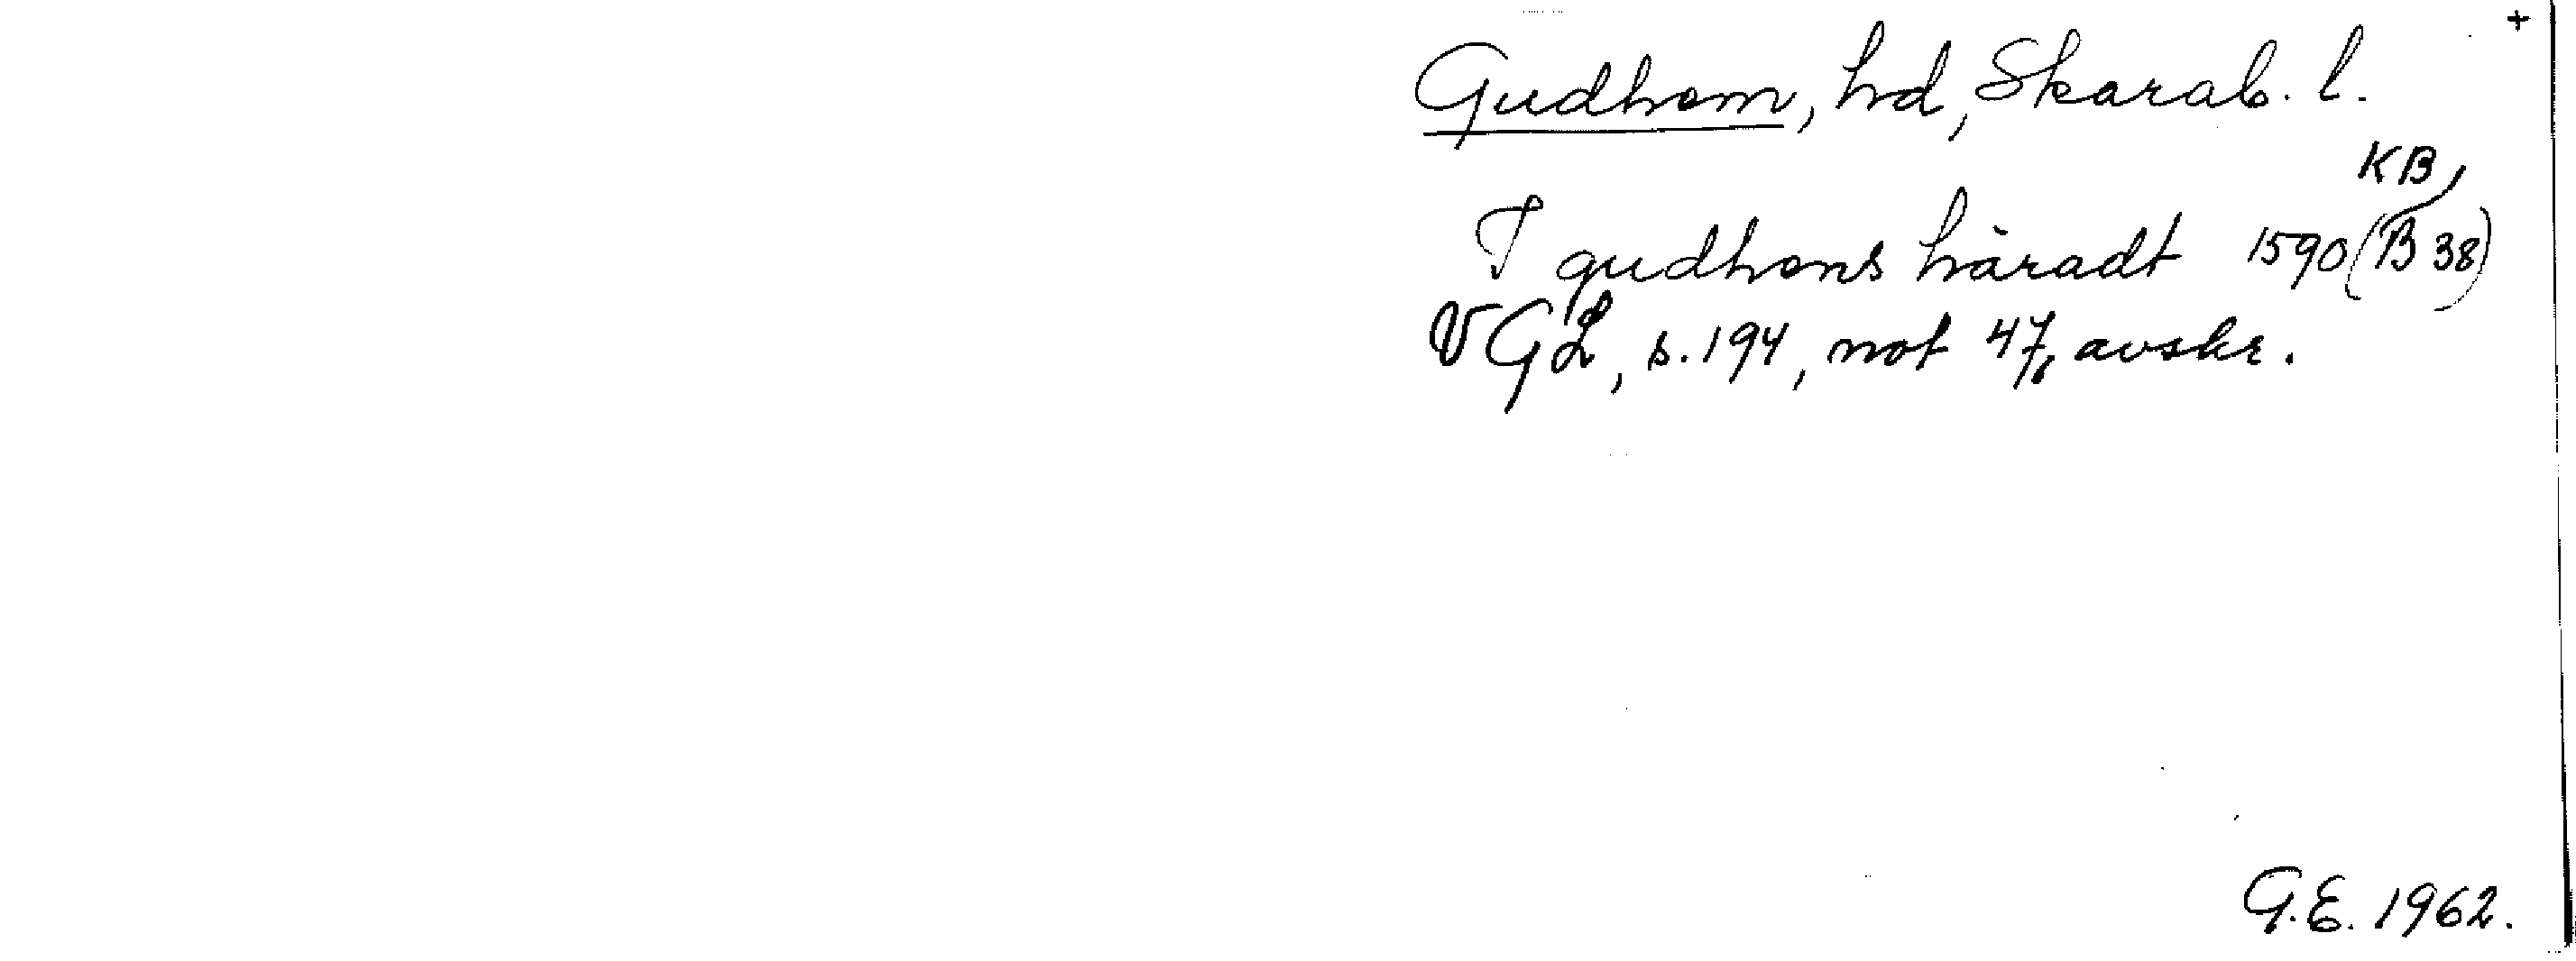 +
Gudhem, hd, Skarab. l.
I gudhens häradt 1590 (KB, B 38)
VGL, s. 194, not 47, avskr.
G.E. 1962.